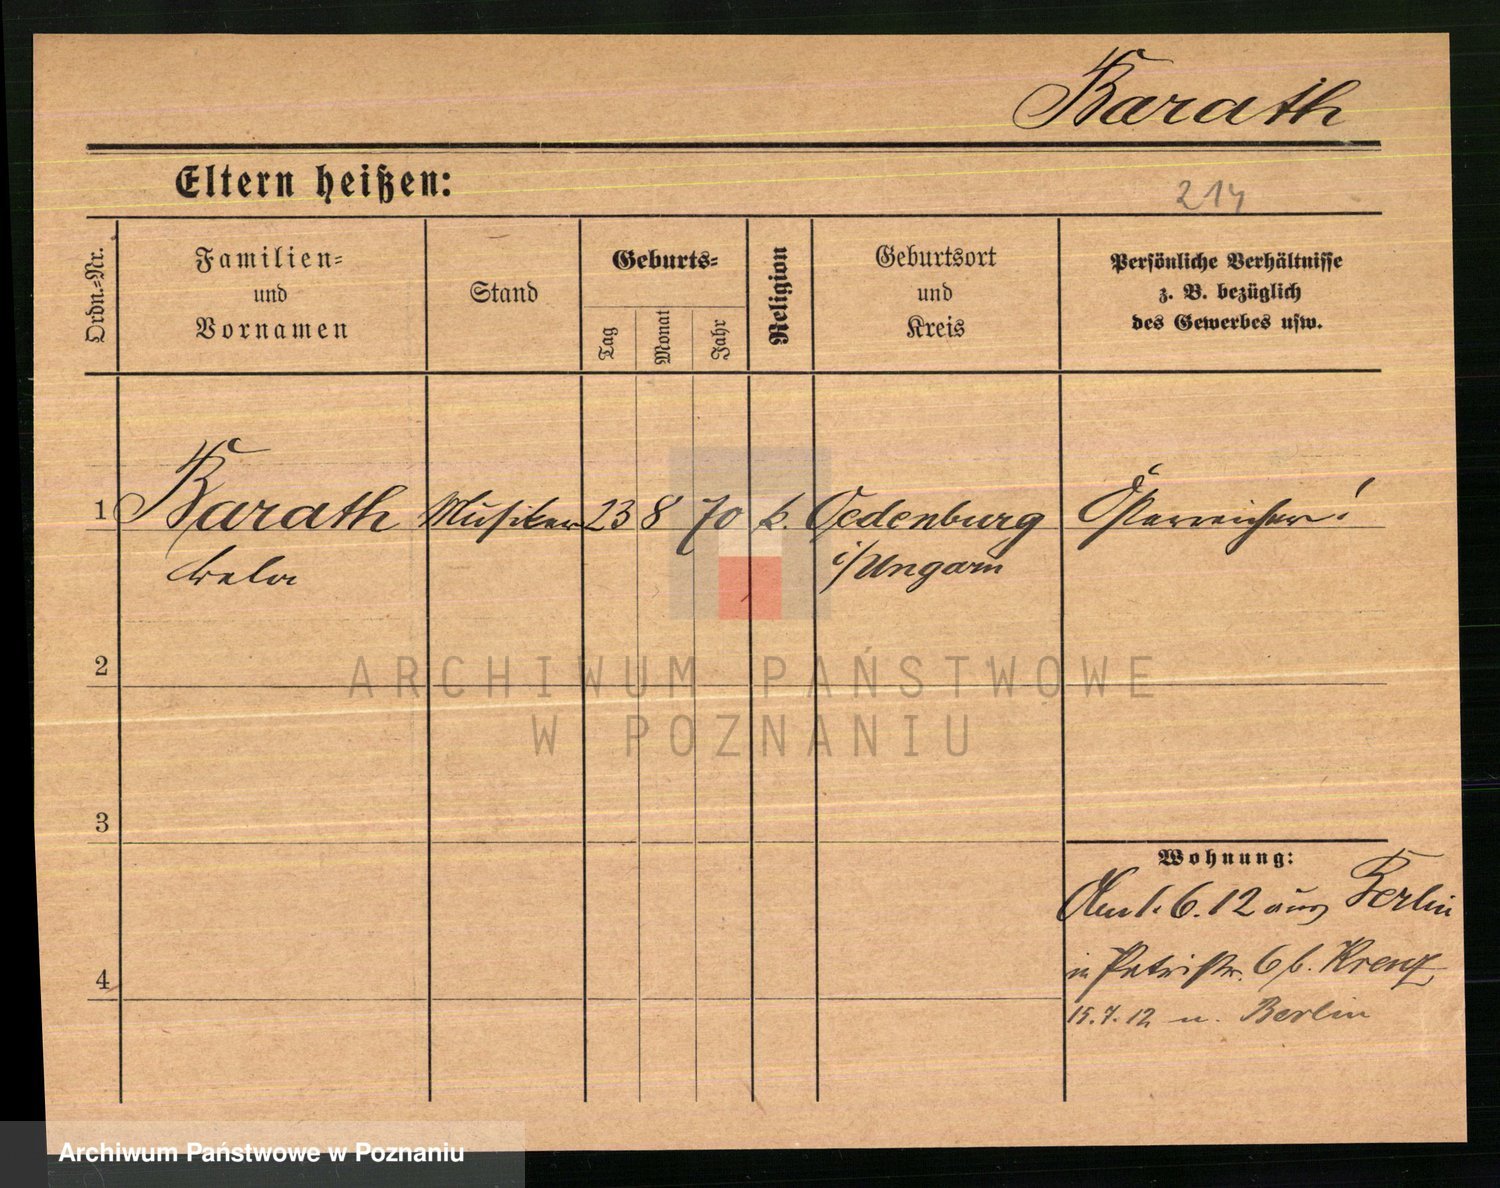 Barath
Eltern heißen:
214
Ordn.-Nr.
Familien-
und
Vornamen
Stand
Geburts-
Tag
Monat
Jahr
Religion
Geburtsort
und
Kreis
Persönliche Verhältnisse
z. B. bezüglich
des Gewerbes usw.
1 Barath Musiker 23 8 70 k. Oedenburg Österreicher!
Bela i/Ungarn
2
ARCHIWUM PAŃSTWOWE
W POZNANIU
3
Wohnung:
Am 1.6.12 aus Berlin
4 in Petristr. 6 b. Kreuz
15.7.12 n. Berlin
Archiwum Państwowe w Poznaniu